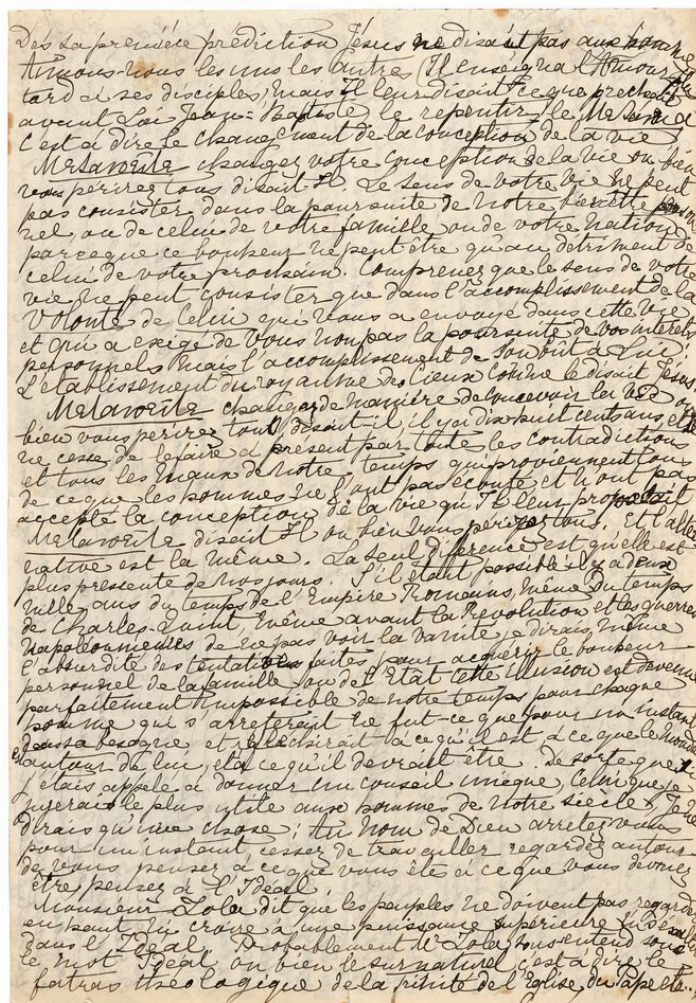 Dès sa première prédiction Jésus ne disait pas aux hommes
Aimons-nous les uns les autres (Il enseigna l'Amour plus
tard à ses disciples, mais Il leur disait ce que prechait
avant Lui Jean-Baptiste le repentir, le
c'est à dire le changement de la conception de la vie
changez votre conception de la vie ou bien
vous périrez tous disait Il. Le sens de votre vie ne peut
pas consister dans la poursuite de notre bienêtre
nel, ou de celui de votre famille ou de votre nation
parceque ce bonheur ne peut être qu'au detriment de
celui de votre prochain. Comprenez que le sens de votre
vie ne peut consister que dans l'accomplissement de la
Volonté de Celui qui vous a envoyé dans cette vie
et qui a exigé de vous non pas la poursuite de vos interets
personnels mais l'accomplissement de Son bût à Lui
L'établissement du royaume des Cieux comme le disait Jésus
changez de manière de concevoir la vie ou
bien vous périrez tous disait-il, il y a dix huit cents ans, et Il
ne cesse de le faire à présent par toute les contradictions
et tous les maux de notre temps qui proviennent tous
de ce que les hommes ne l'ont pas écouté et n'ont pas
accepté la conception de la vie qu'Il leur proposait
disait Il ou bien vous périrez tous. Et l'alter
native est la même. La seul diference est qu'elle est
plus pressente de nos jours. S'il était possible il y a deux
mille ans du temps de l'Empire Romains, même du temps
de Charles-Quint, même avant la Revolution et les guerres
Napoléonniennes de ne pas voir la vanité, je dirais même
l'absurdité des tentatives faites pour acquérir le bonheur
personnel de la famille ou de l'Etat cette illusion est devenue
parfaitement impossible de notre temps pour chaque
homme qui s'arreterait ne fut-ce que pour un instant
dans sa besogne et reflechirait à ce qu'il est, à ce que le monde
autour de lui, et à ce qu'il devrait être. De sorte que si
j'étais appelé à donner un conseil unique, celui que je
jugerais le plus utile aux hommes de notre siècle, je ne
dirais qu'une chose: Au nom de Dieu arretez vous
pour un instant cessez de travailler regardez autour
de vous pensez à ce que vous êtes et ce que vous devriez
être pensez à l'Ideal.
Monsieur Zola dit que les peuples ne doivent pas regarder
en haut, ni croire à une puissance supérieure
dans l'Ideal. Probablement Mr Zola sousentend sous
le mot Ideal ou bien le surnaturel c'est à dire le
fatras théologique de la trinité de l'Eglise du Pape etc...